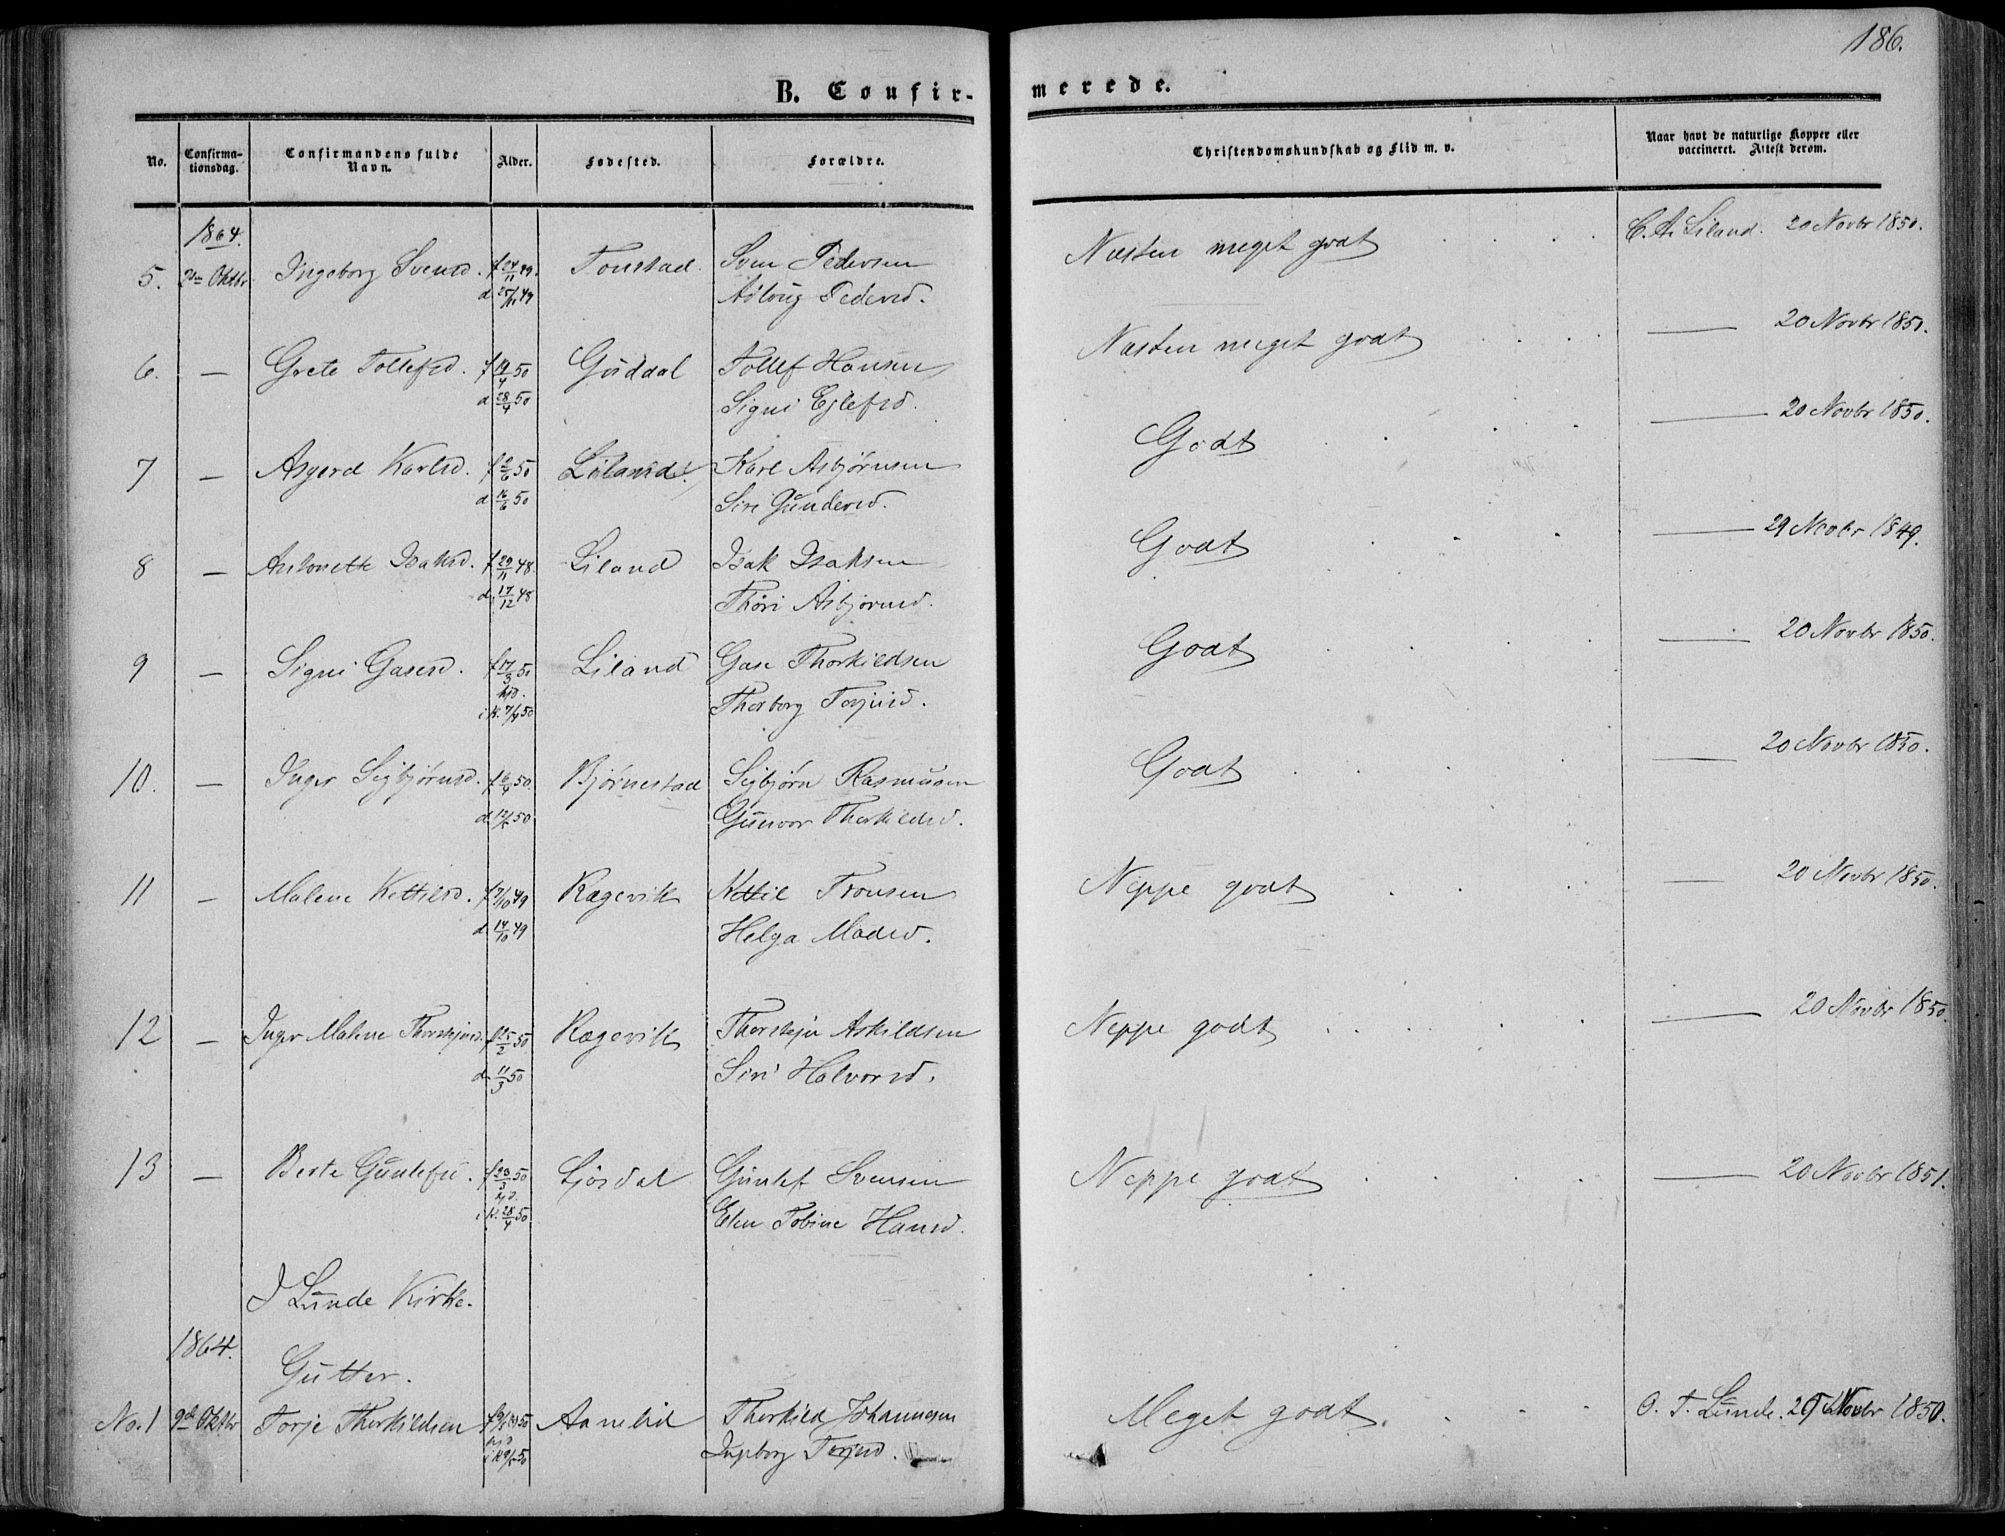 186.
B. Confir-
merede.
No.
Confirma-
tionsdag.
Confirmandens fulde
Navn.
Alder.
Fødested.
Forældre.
Christendomskundskab og Flid m. v.
Naar havt de naturlige Kopper eller
vaccineret. Attest derom.
1864.
5. 2den Oktbr. Ingeborg Svensd. f 24/11 49. Tonstad. Sven Pedersen Næsten meget godt C. A. Liland. 20 Novbr 1850.
d 25/11 49 Pedersd.
6. — Grete Tollefsd. f 19/4 50 Guddal Tollef Hansen Næsten meget godt — 20 Novbr 1850.
d 28/4 50 Signi Ejlefsd.
7 — Asgerd Karlsd. f 2/6 50 Liland Karl Asbjørnsen Godt — 20 Novbr 1850.
d 16/6 50 Siri Gundersd.
8 — Antonette Isaksd. f 29/11 48. Liland Isak Isaksen Godt — 29 Novbr 1849.
d 17/12 48 Thori Asbjørnsd.
9 — Signi Gasesd. f 17/3 50 Liland Gase Thorkildsen Godt — 20 Novbr 1850.
hjd.
i K. 7/4 50 Thorborg Torjusd.
10. — Inger Sigbjørnsd. f 6/4 50. Bjørnestad Sigbjørn Rasmusen Godt — 20 Novbr 1850.
d 50 Gunvor Thorkildsd.
11 — Malene Kettilsd. f 7/10 49 Rægevik Kettil Tronsen Neppe godt — 20 Novbr 1850.
d. 14/10 49 Helga Madsd.
12 — Inger Malene Thorskjisd. f 25/2 50 Rægevik Askildsen Neppe godt — 20 Novbr 1850.
d. 11/3 50 Siri Halvorsd.
13 — Berte Gunlefsd. f 23/3 50 Ljosdal Gunlef Svensen Neppe godt — 20 Novbr 1851.
hjd.
i K. 28/4 50 Elen Tobine Hansd.
I Lunde Kirke.
1864.
Gutter.
No. 1 2d Oktbr Torje Thorkildsen Thorkild Johannesen Meget godt. O. T. Lunde. Novbr 1850.
hjd
Ingeborg Torjusd.